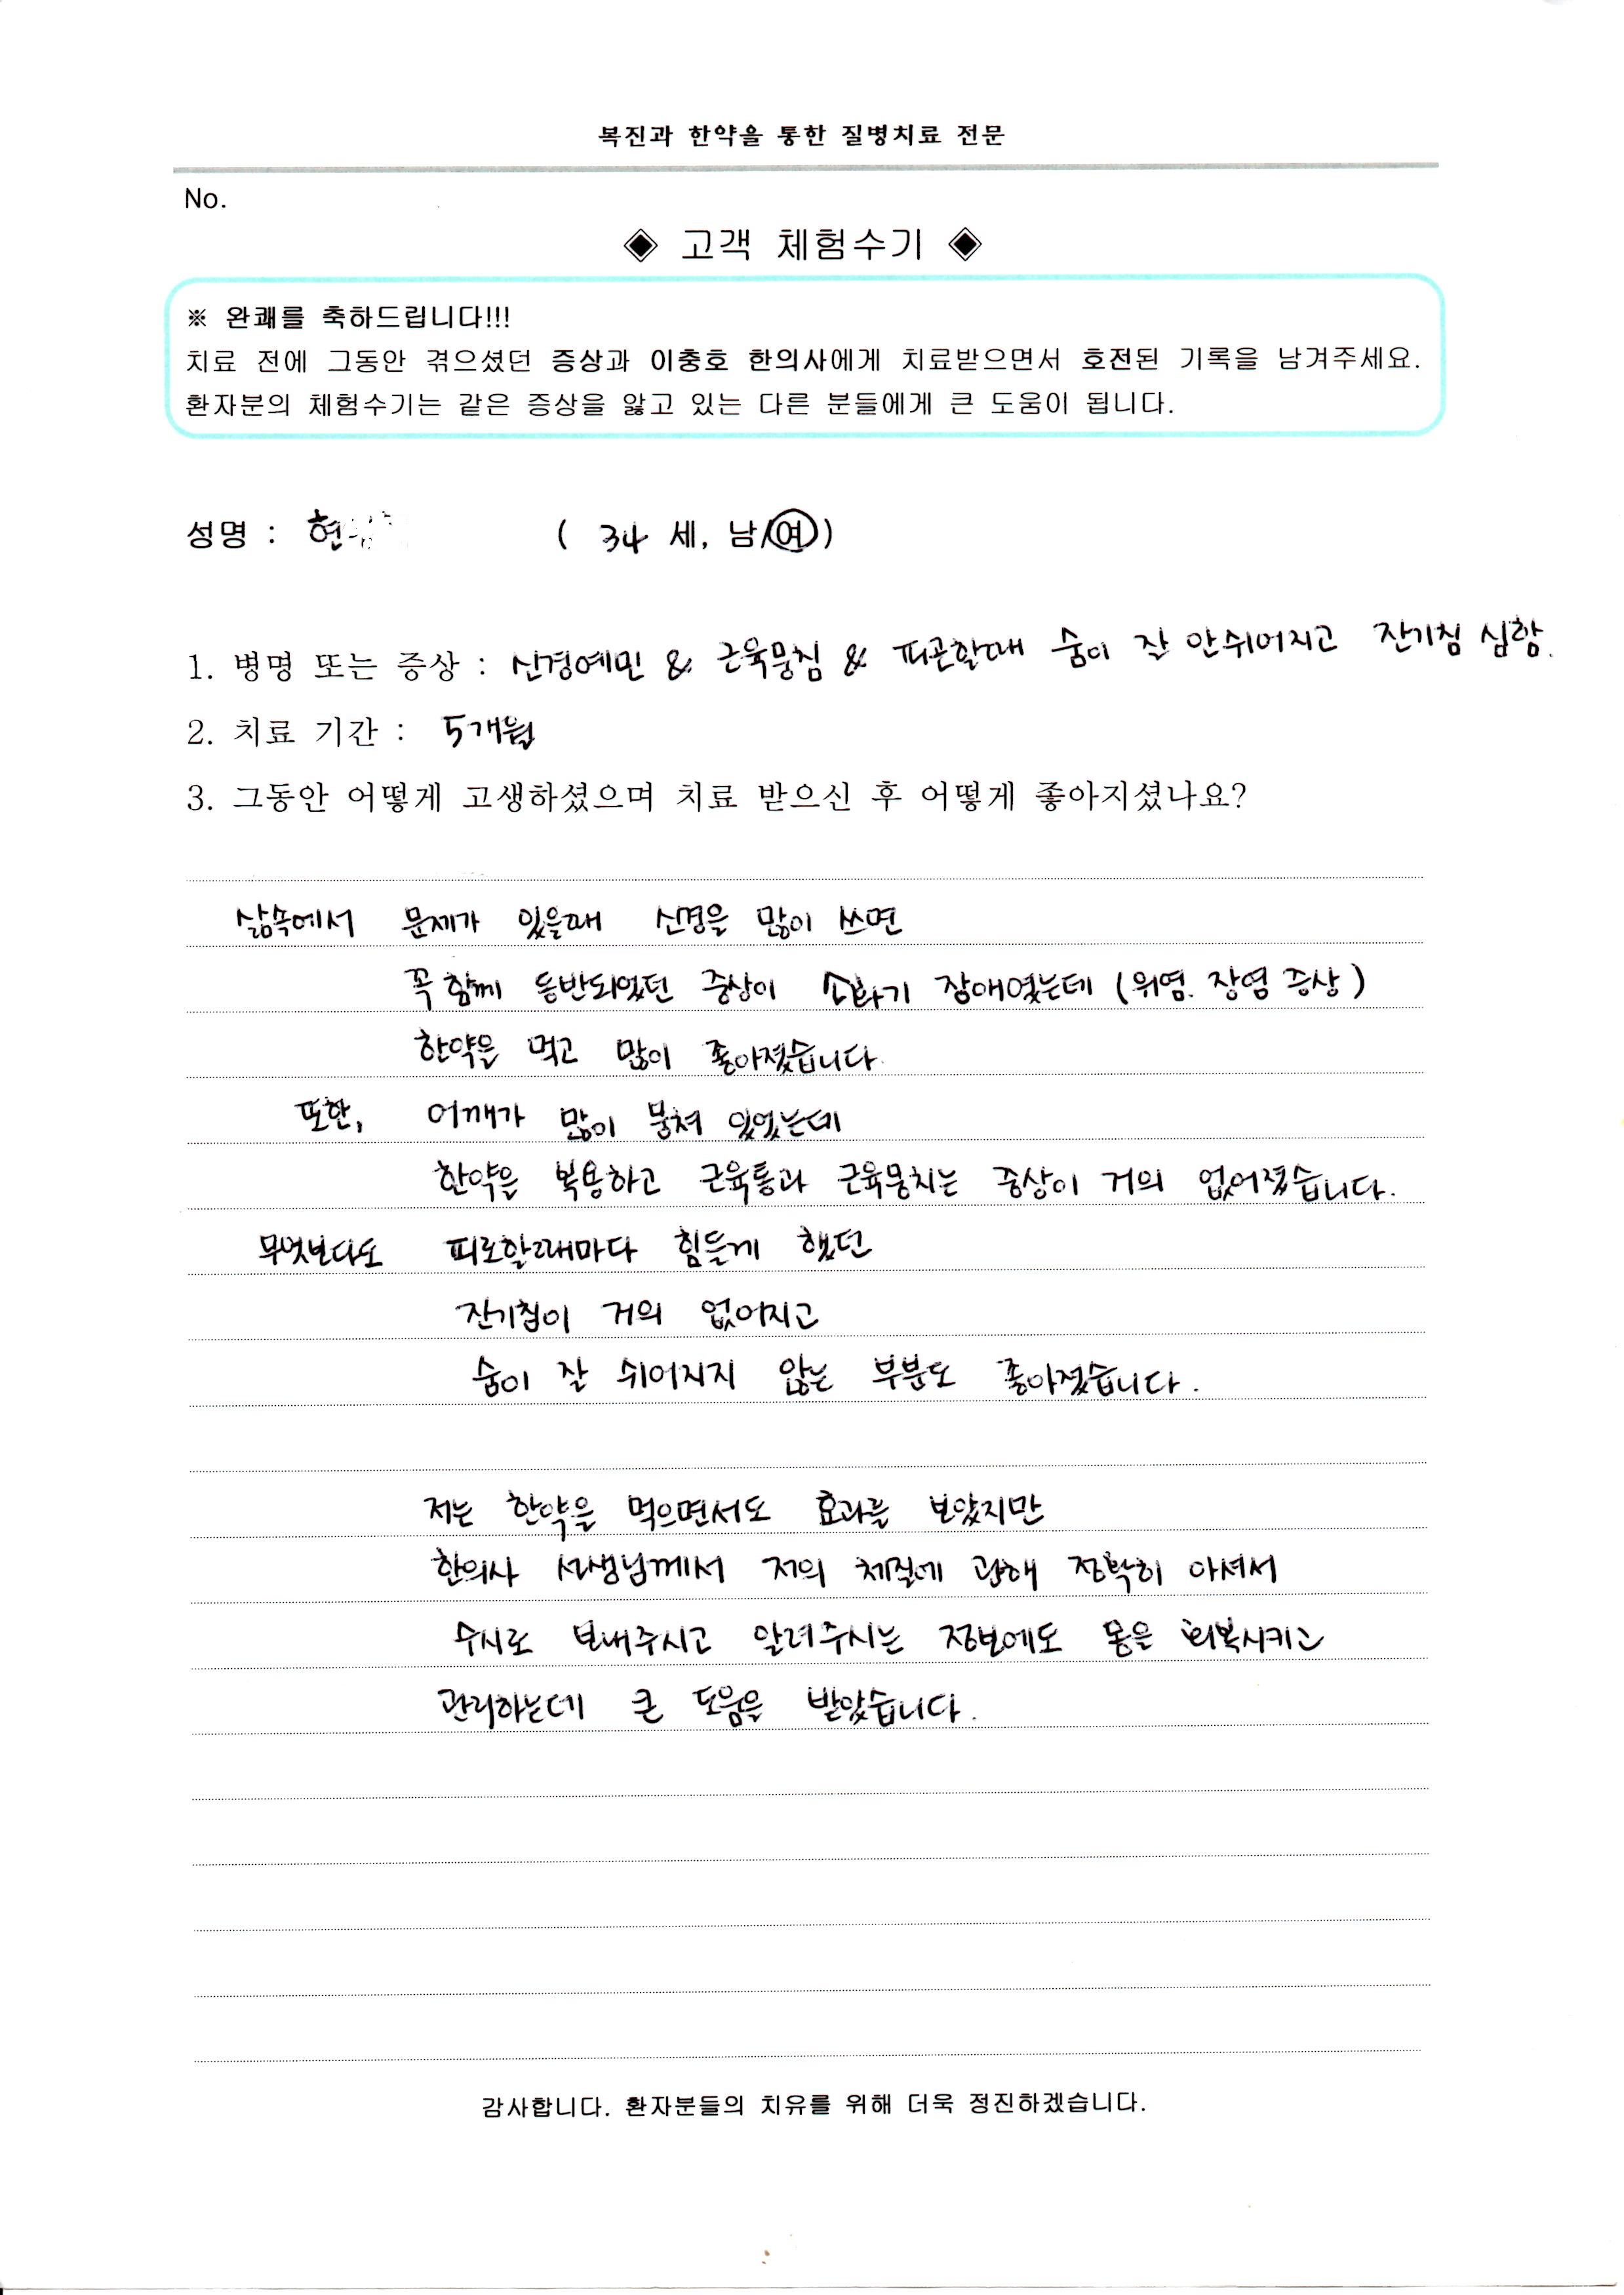 복진과 한약을 통한 질병치료 전문
No.
◈ 고객 체험수기 ◈
※ 완쾌를 축하드립니다!!!
치료 전에 그동안 겪으셨던 증상과 이충호 한의사에게 치료받으면서 호전된 기록을 남겨주세요.
환자분의 체험수기는 같은 증상을 앓고 있는 다른 분들에게 큰 도움이 됩니다.
성명 : 현 ( 34 세, 남/여)
1. 병명 또는 증상 : 신경예민 & 근육뭉침 & 피곤할때 숨이 잘 안쉬어지고 잔기침 심함.
2. 치료 기간 : 5개월
3. 그동안 어떻게 고생하셨으며 치료 받으신 후 어떻게 좋아지셨나요?
삶속에서 문제가 있을때 신경을 많이 쓰면
꼭 함께 동반되었던 증상이 소화기 장애였는데 (위염. 장염 증상)
한약을 먹고 많이 좋아졌습니다.
또한, 어깨가 많이 뭉쳐 있었는데
한약을 복용하고 근육통과 근육뭉치는 증상이 거의 없어졌습니다.
무엇보다도 피로할때마다 힘들게 했던
잔기침이 거의 없어지고
숨이 잘 쉬어지지 않는 부분도 좋아졌습니다.
저는 한약을 먹으면서도 효과를 보았지만
한의사 선생님께서 저의 체질에 관해 정확히 아셔서
수시로 보내주시고 알려주시는 정보에도 몸을 회복시키고
관리하는데 큰 도움을 받았습니다.
감사합니다. 환자분들의 치유를 위해 더욱 정진하겠습니다.